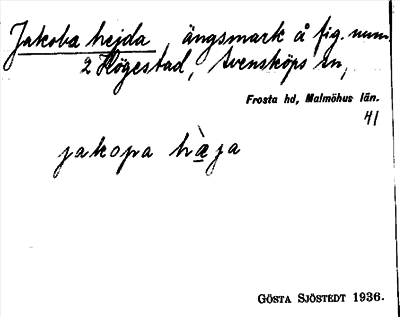 Jakoba hejda, ängsmark å fig. num.
2 Högestad, Svensköps sn,
Frosta hd, Malmöhus län.
41
jakopa hæ̀ja
GÖSTA SJÖSTEDT 1936.